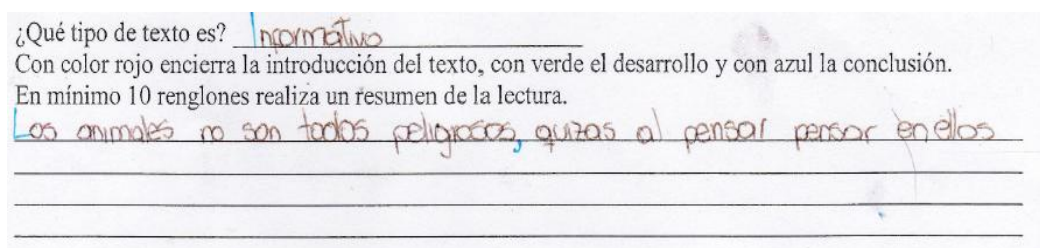 ¿Qué tipo de texto es? Informativo
Con color rojo encierra la introducción del texto, con verde el desarrollo y con azul la conclusión.
En mínimo 10 renglones realiza un resumen de la lectura.
Los animales no son todos peligrosos, quizas al pensar pensar en ellos